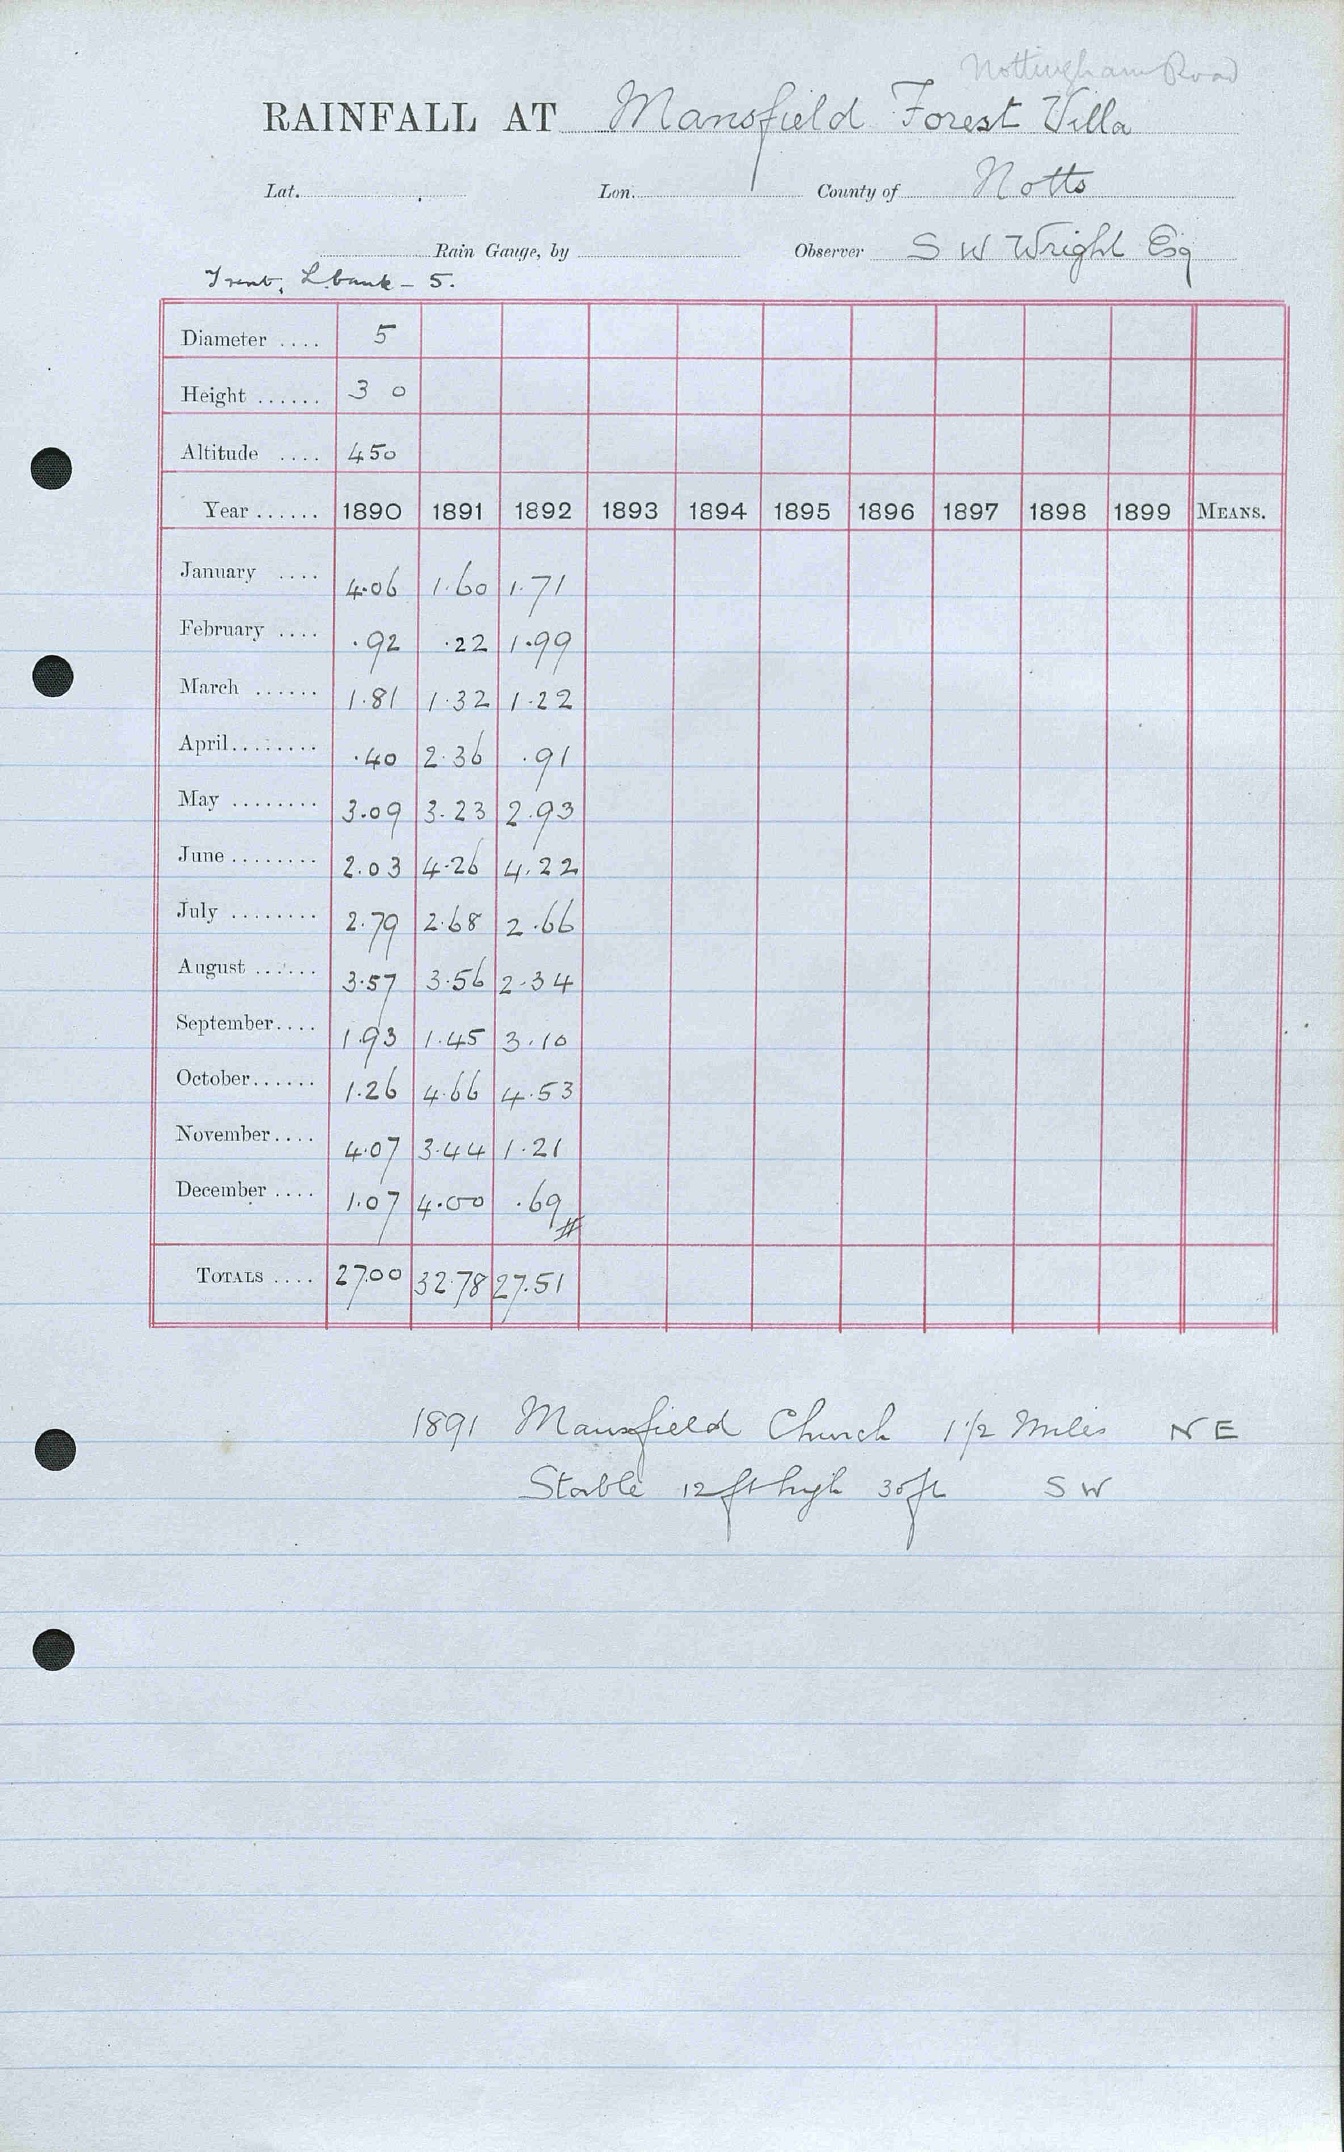 Nottingham Road
RAINFALL AT Mansfield Forest Villa
Lat. Lon. County of Notts
Rain Gauge, by Observer S W Wright Esq
Trent, L. bank - 5.
Diameter .... 5
Height ...... 3 0
Altitude .... 450
Year ...... 1890 1891 1892 1893 1894 1895 1896 1897 1898 1899 MEANS.
January .... 4.06 1.60 1.71
February .... .92 .22 1.99
March ...... 1.81 1.32 1.22
April........ .40 2.36 .91
May ........ 3.09 3.23 2.93
June ........ 2.03 4.26 4.22
July ........ 2.79 2.68 2.66
August ...... 3.57 3.56 2.34
September.... 1.93 1.45 3.10
October...... 1.26 4.66 4.53
November.... 4.07 3.44 1.21
December .... 1.07 4.00 .69
TOTALS .... 27.00 32.78 27.51
1891 Mansfield Church 1 1/2 Miles N E
Stable 12 ft high 30 ft S W